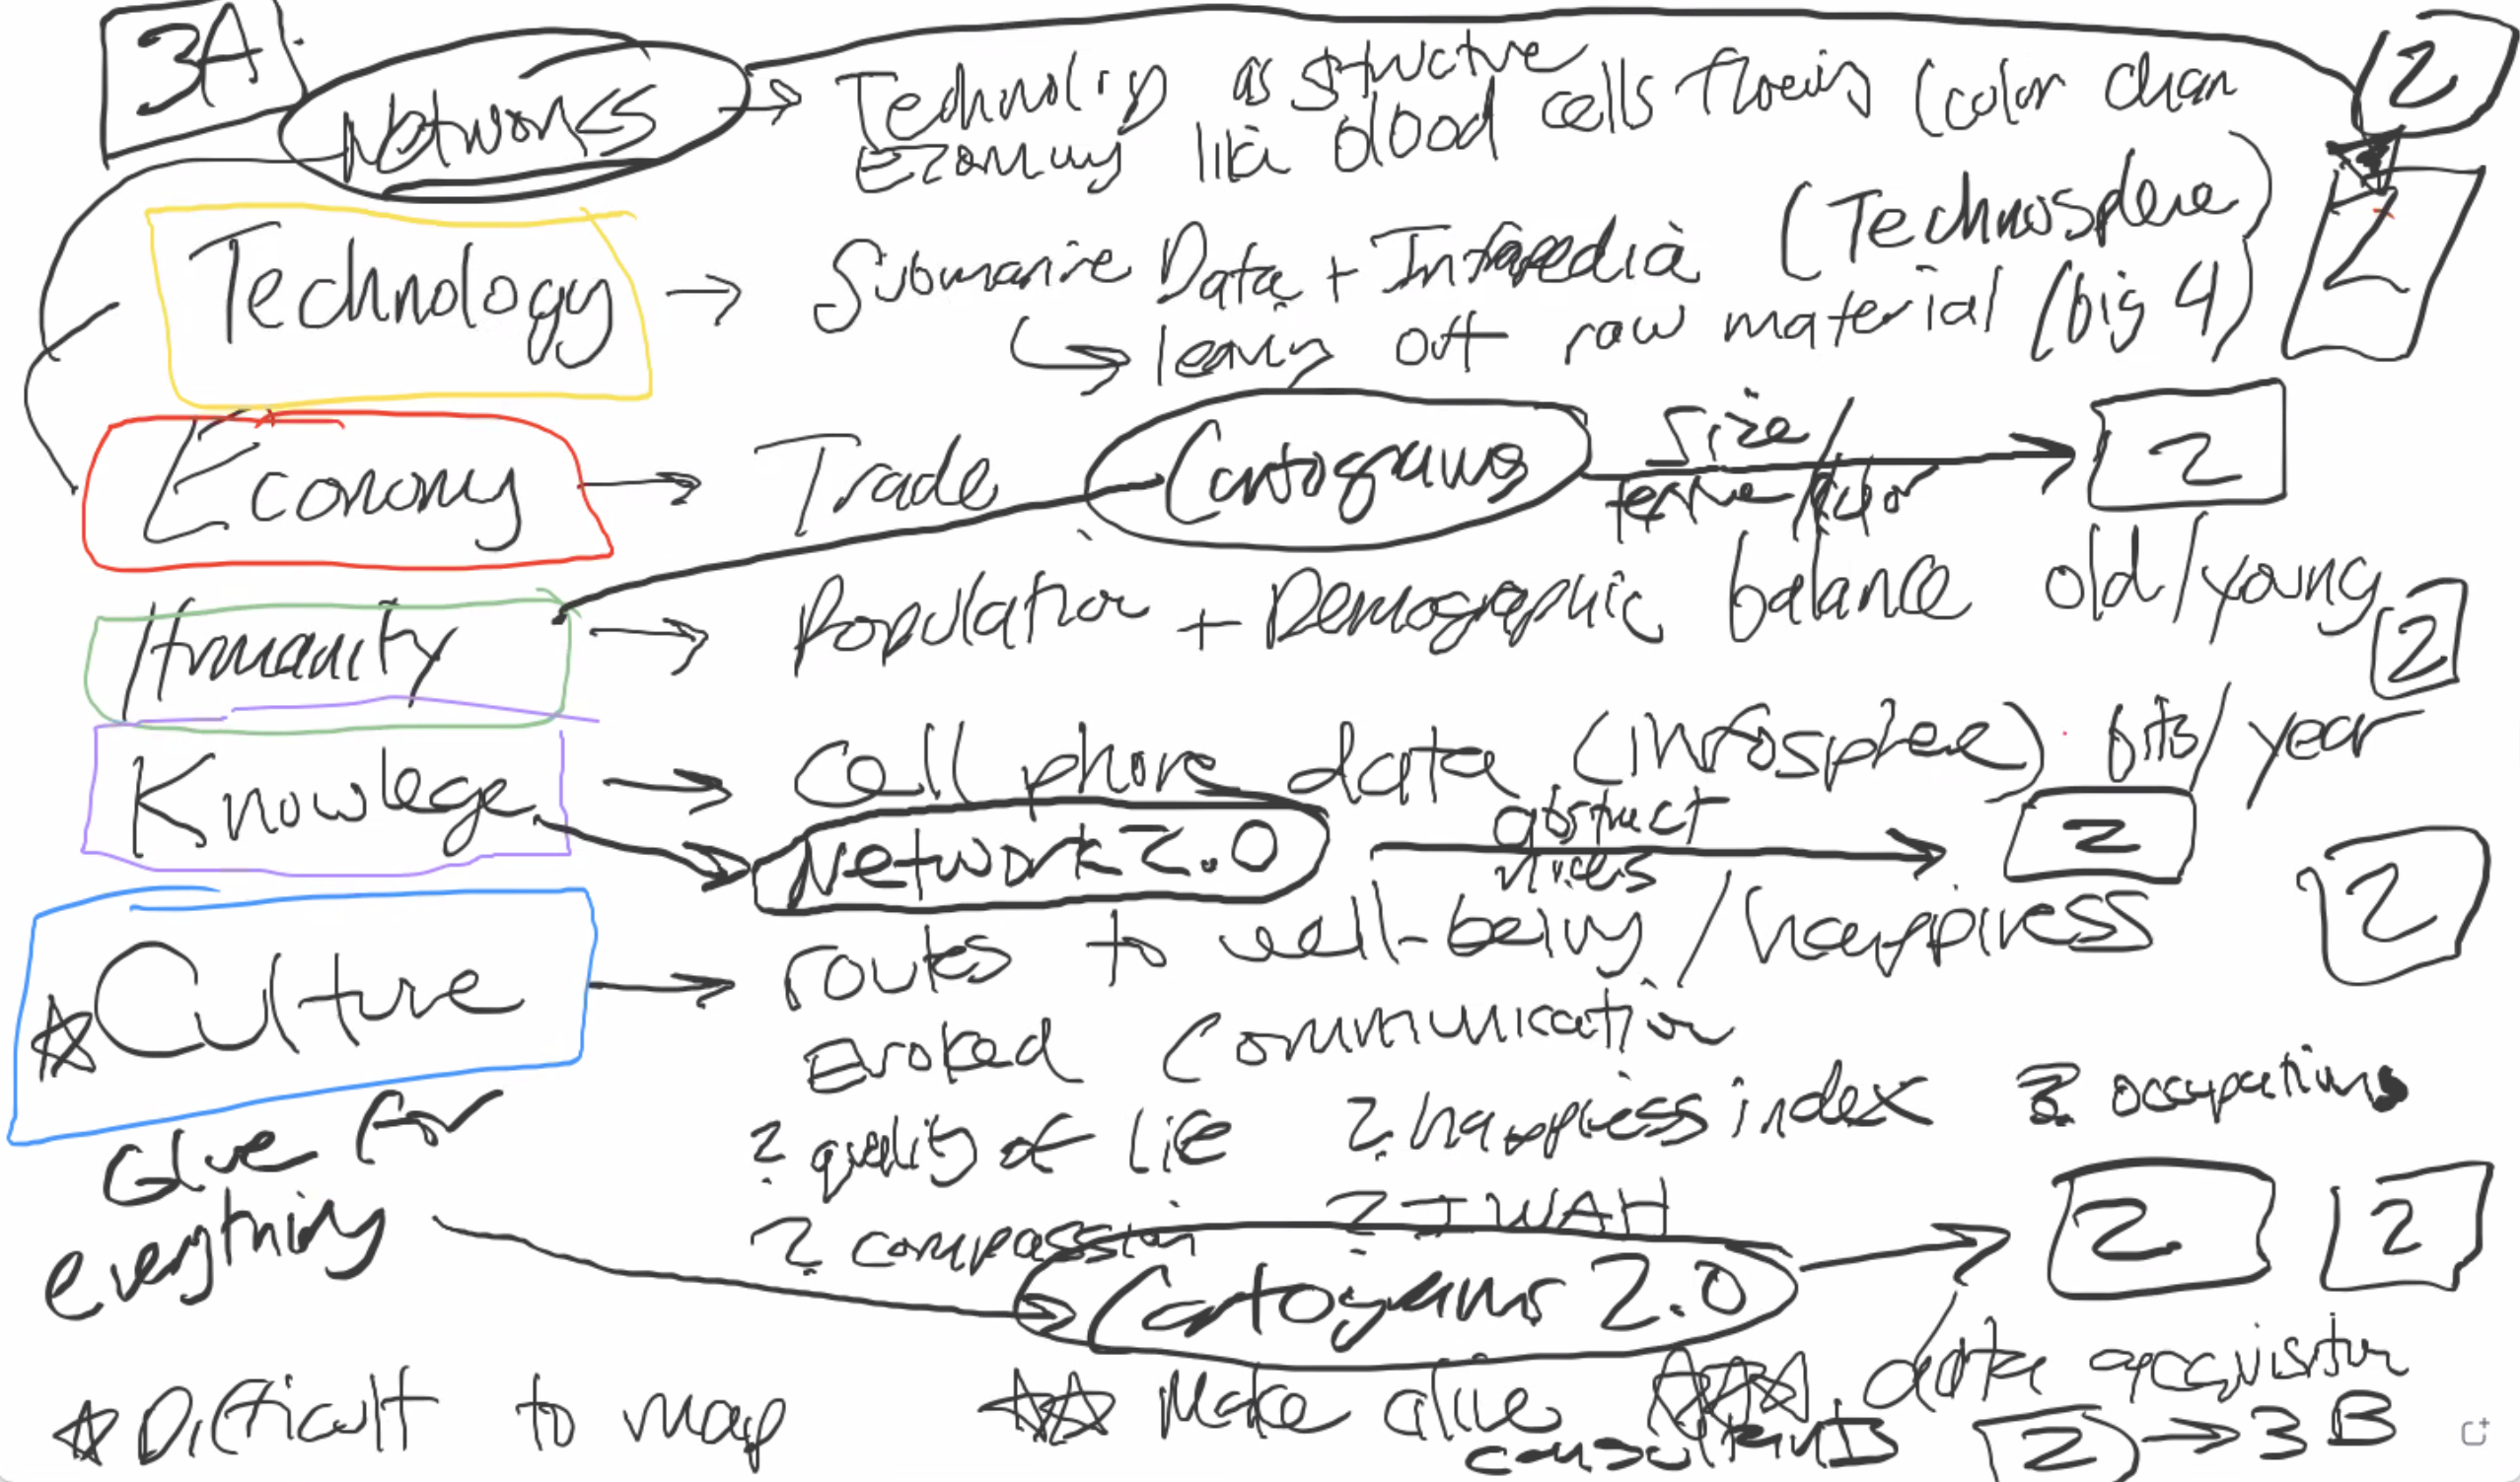 3A
Networks → Technology as structure 2
Economy like blood cells flowing (color chan
Technology → Submarine Data + (Technosphere) 2
↳ leaving off raw material (big 4)
Economy → Trade Cartograms size/ → 2
Humanity → Population + Demographic balance old/young 2
Knowlege → Cell phone data (infosphere) bits/year
Network 2.0 abstract → 2
☆Culture → routes to well-being/happiness 2
Evoked Communication
Glue for ? quality of life ? happiness index ? occupations
everything ? compassion ? IWAH
Cartograms 2.0 → 2 2
☆Difficult to map ☆☆ Make alive ☆☆☆ data acquisition
consultants 2 → 3B